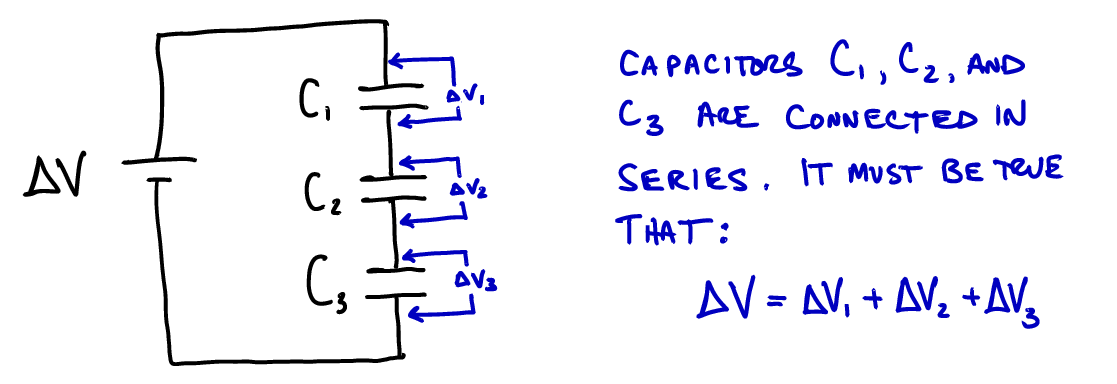 ΔV
C₁
ΔV₁
C₂
ΔV₂
C₃
ΔV₃
CAPACITORS C₁, C₂, AND
C₃ ARE CONNECTED IN
SERIES. IT MUST BE TRUE
THAT:
ΔV = ΔV₁ + ΔV₂ + ΔV₃